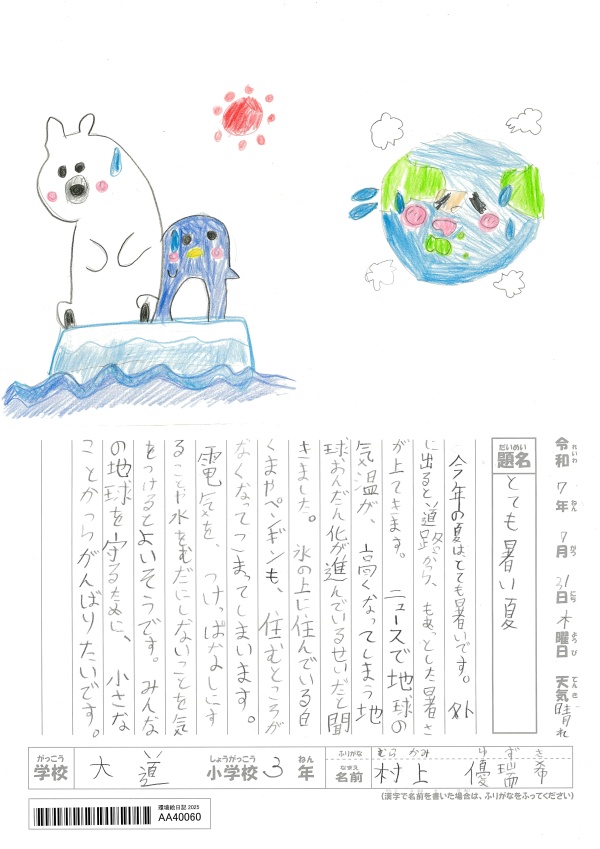 令和7年7月31日木曜日 天気晴れ
れいわ ねん がつ にち ようび てんき
だいめい
題名
とても暑い夏
今年の夏は、とても暑いです。外
に出ると道路から、もあっとした暑さ
が上てきます。ニュースで地球の
気温が、高くなってしまう地
球おんだん化が進んでいるせいだと聞
きました。氷の上に住んでいる白
くまやペンギンも、住むところが
なくなってこまってしまいます。
電気を、つけっぱなしにす
ることや水をむだにしないことを気
をつけるとよいそうです。みんな
の地球を守るために、小さな
ことからがんばりたいです。
がっこう しょうがっこう ねん ふりがな むらかみ ゆずき
学校 大道 小学校 3年 なまえ 名前 村上 優瑞希
(漢字で名前を書いた場合は、ふりがなをふってください)
環境絵日記 2025
AA40060